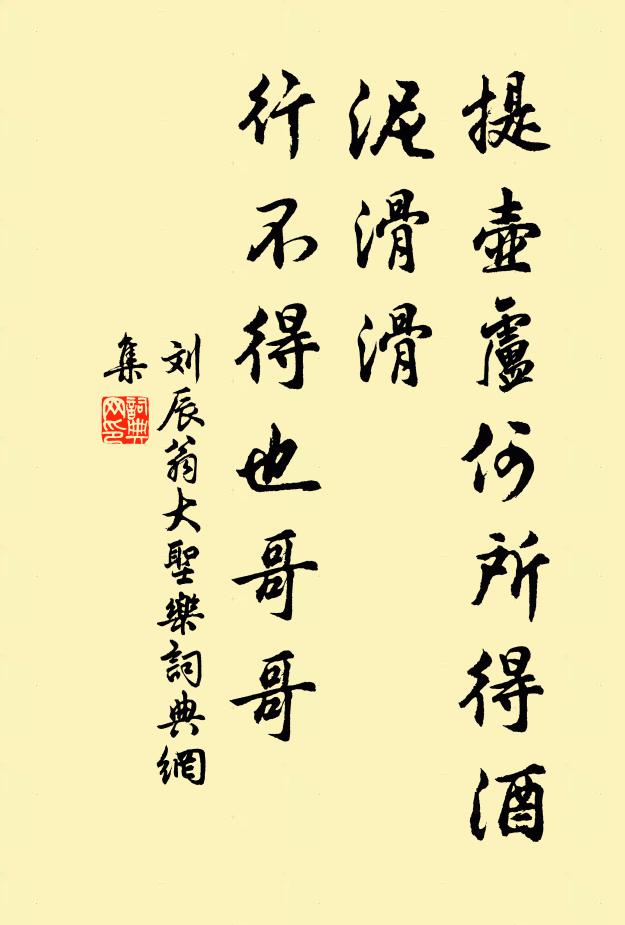 提壺盧何所得酒
泥滑滑
行不得也哥哥
刘辰翁大聖樂詞典網
集
詞典
网印